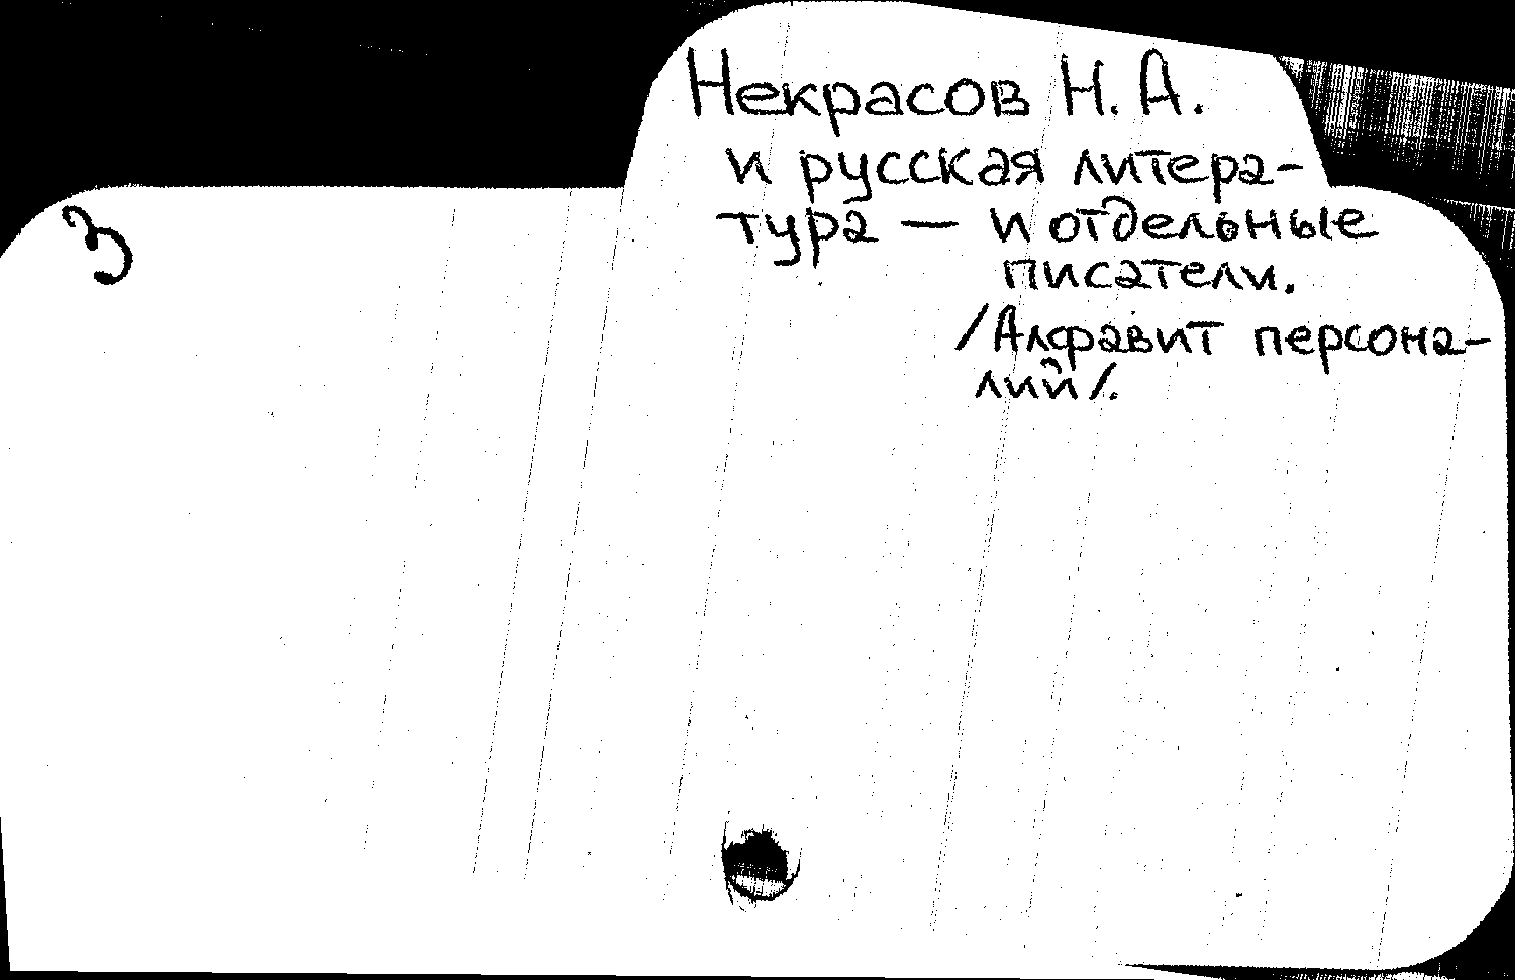 Некрасов Н. А.
и русская литера-
тура — и отдельные
писатели.
/Алфавит персона-
лий/.
3